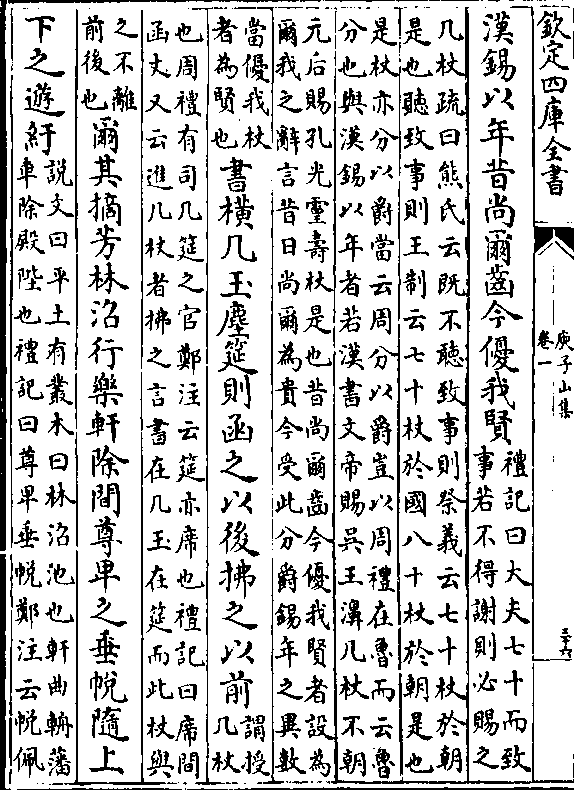 欽定四庫全書
庾子山集
卷一
三十六
漢錫以年昔尚爾齒今優我賢
禮記曰大夫七十而致
事若不得謝則必賜之
几杖疏曰熊氏云既不聽致事則祭義云七十杖於朝
是也聽致事則王制云七十杖於國八十杖於朝是也
是杖亦分以爵當云周分以爵豈以周禮在魯而云魯
分也與漢錫以年者若漢書文帝賜吳王濞几杖不朝
元后賜孔光靈壽杖是也昔尚爾齒今優我賢者設為
爾我之辭言昔日尚爾為貴今受此分爵錫年之異數
當優我杖
者為賢也
書橫几玉塵筵則函之以後拂之以前
謂授
几杖
也周禮有司几筵之官鄭注云筵亦席也禮記曰席間
函丈又云進几杖者拂之言書在几玉在筵而此杖與
之不離
前後也
爾其摘芳林沼行樂軒除間尊卑之垂帨隨上
下之遊紆
說文曰平土有叢木曰林沼池也軒曲輈藩
車除殿陛也禮記曰尊卑垂帨鄭注云帨佩